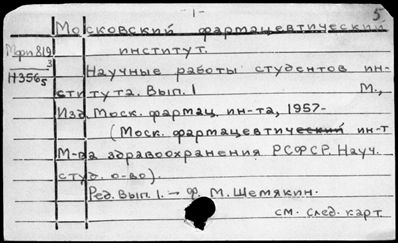 - 1 - 5
Московский фармацевтический
институт.
Мфп 819
3
Н3565
Научные работы студентов ин-
ститута. Вып. 1 М.,
Изд. Моск. фармац. ин-та, 1957-
(Моск. фармацевтический ин-т
М-ва здравоохранения РСФСР. Науч.
студ. о-во).
Ред. вып. 1. - ф. М. Шемякин.
см. след. карт